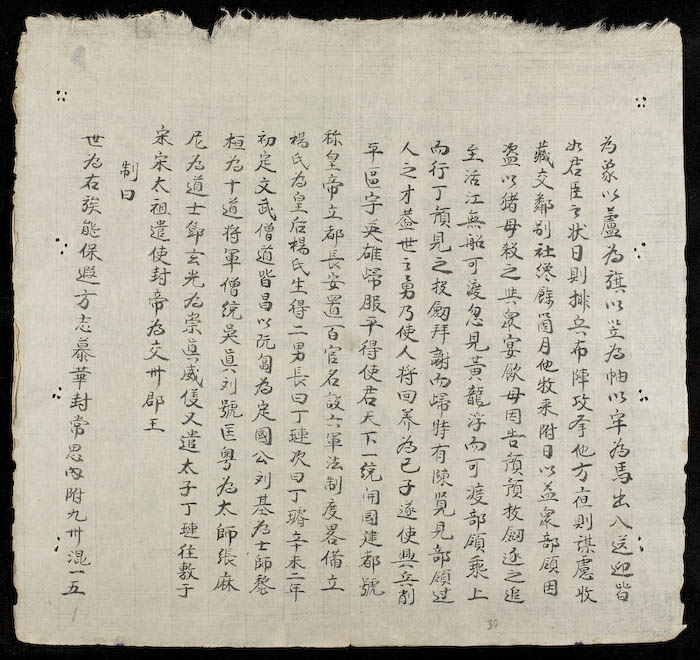 為象以蘆為旗以笠為帕以牢為馬出入送迎皆
如君臣之状日則排兵布陣攻奪他方夜則謀慮收
藏交鄰别社纔餘箇月他牧来附日以益衆部領因
盗以猪母殺之與衆宴飲母因告預預拔劔逐之追
至活江無船可渡忽見黄龍浮而可渡部領乘上
而行丁預見之投劔拜謝而歸時有陳覧見部領过
人之才蓋世之勇乃使人將回養為己子遂使興兵削
平區宇英雄歸服平得使君天下一統開國建都號
称皇帝立都長安置百官名設六軍法制度畧備立
楊氏為皇后楊氏生得二男長曰丁璉次曰丁璿辛未二年
初定文武僧道皆昌以阮匐為定國公刘基為士師黎
桓為十道將軍僧統吳真刘號匡粤為太師張麻
尼為道士鄧玄光為崇真威儀又遣太子丁璉徃敷于
宋宋太祖遣使封帝為交州郡王
制曰
世為右族能保遐方志慕華封常思內附九州混一五
30